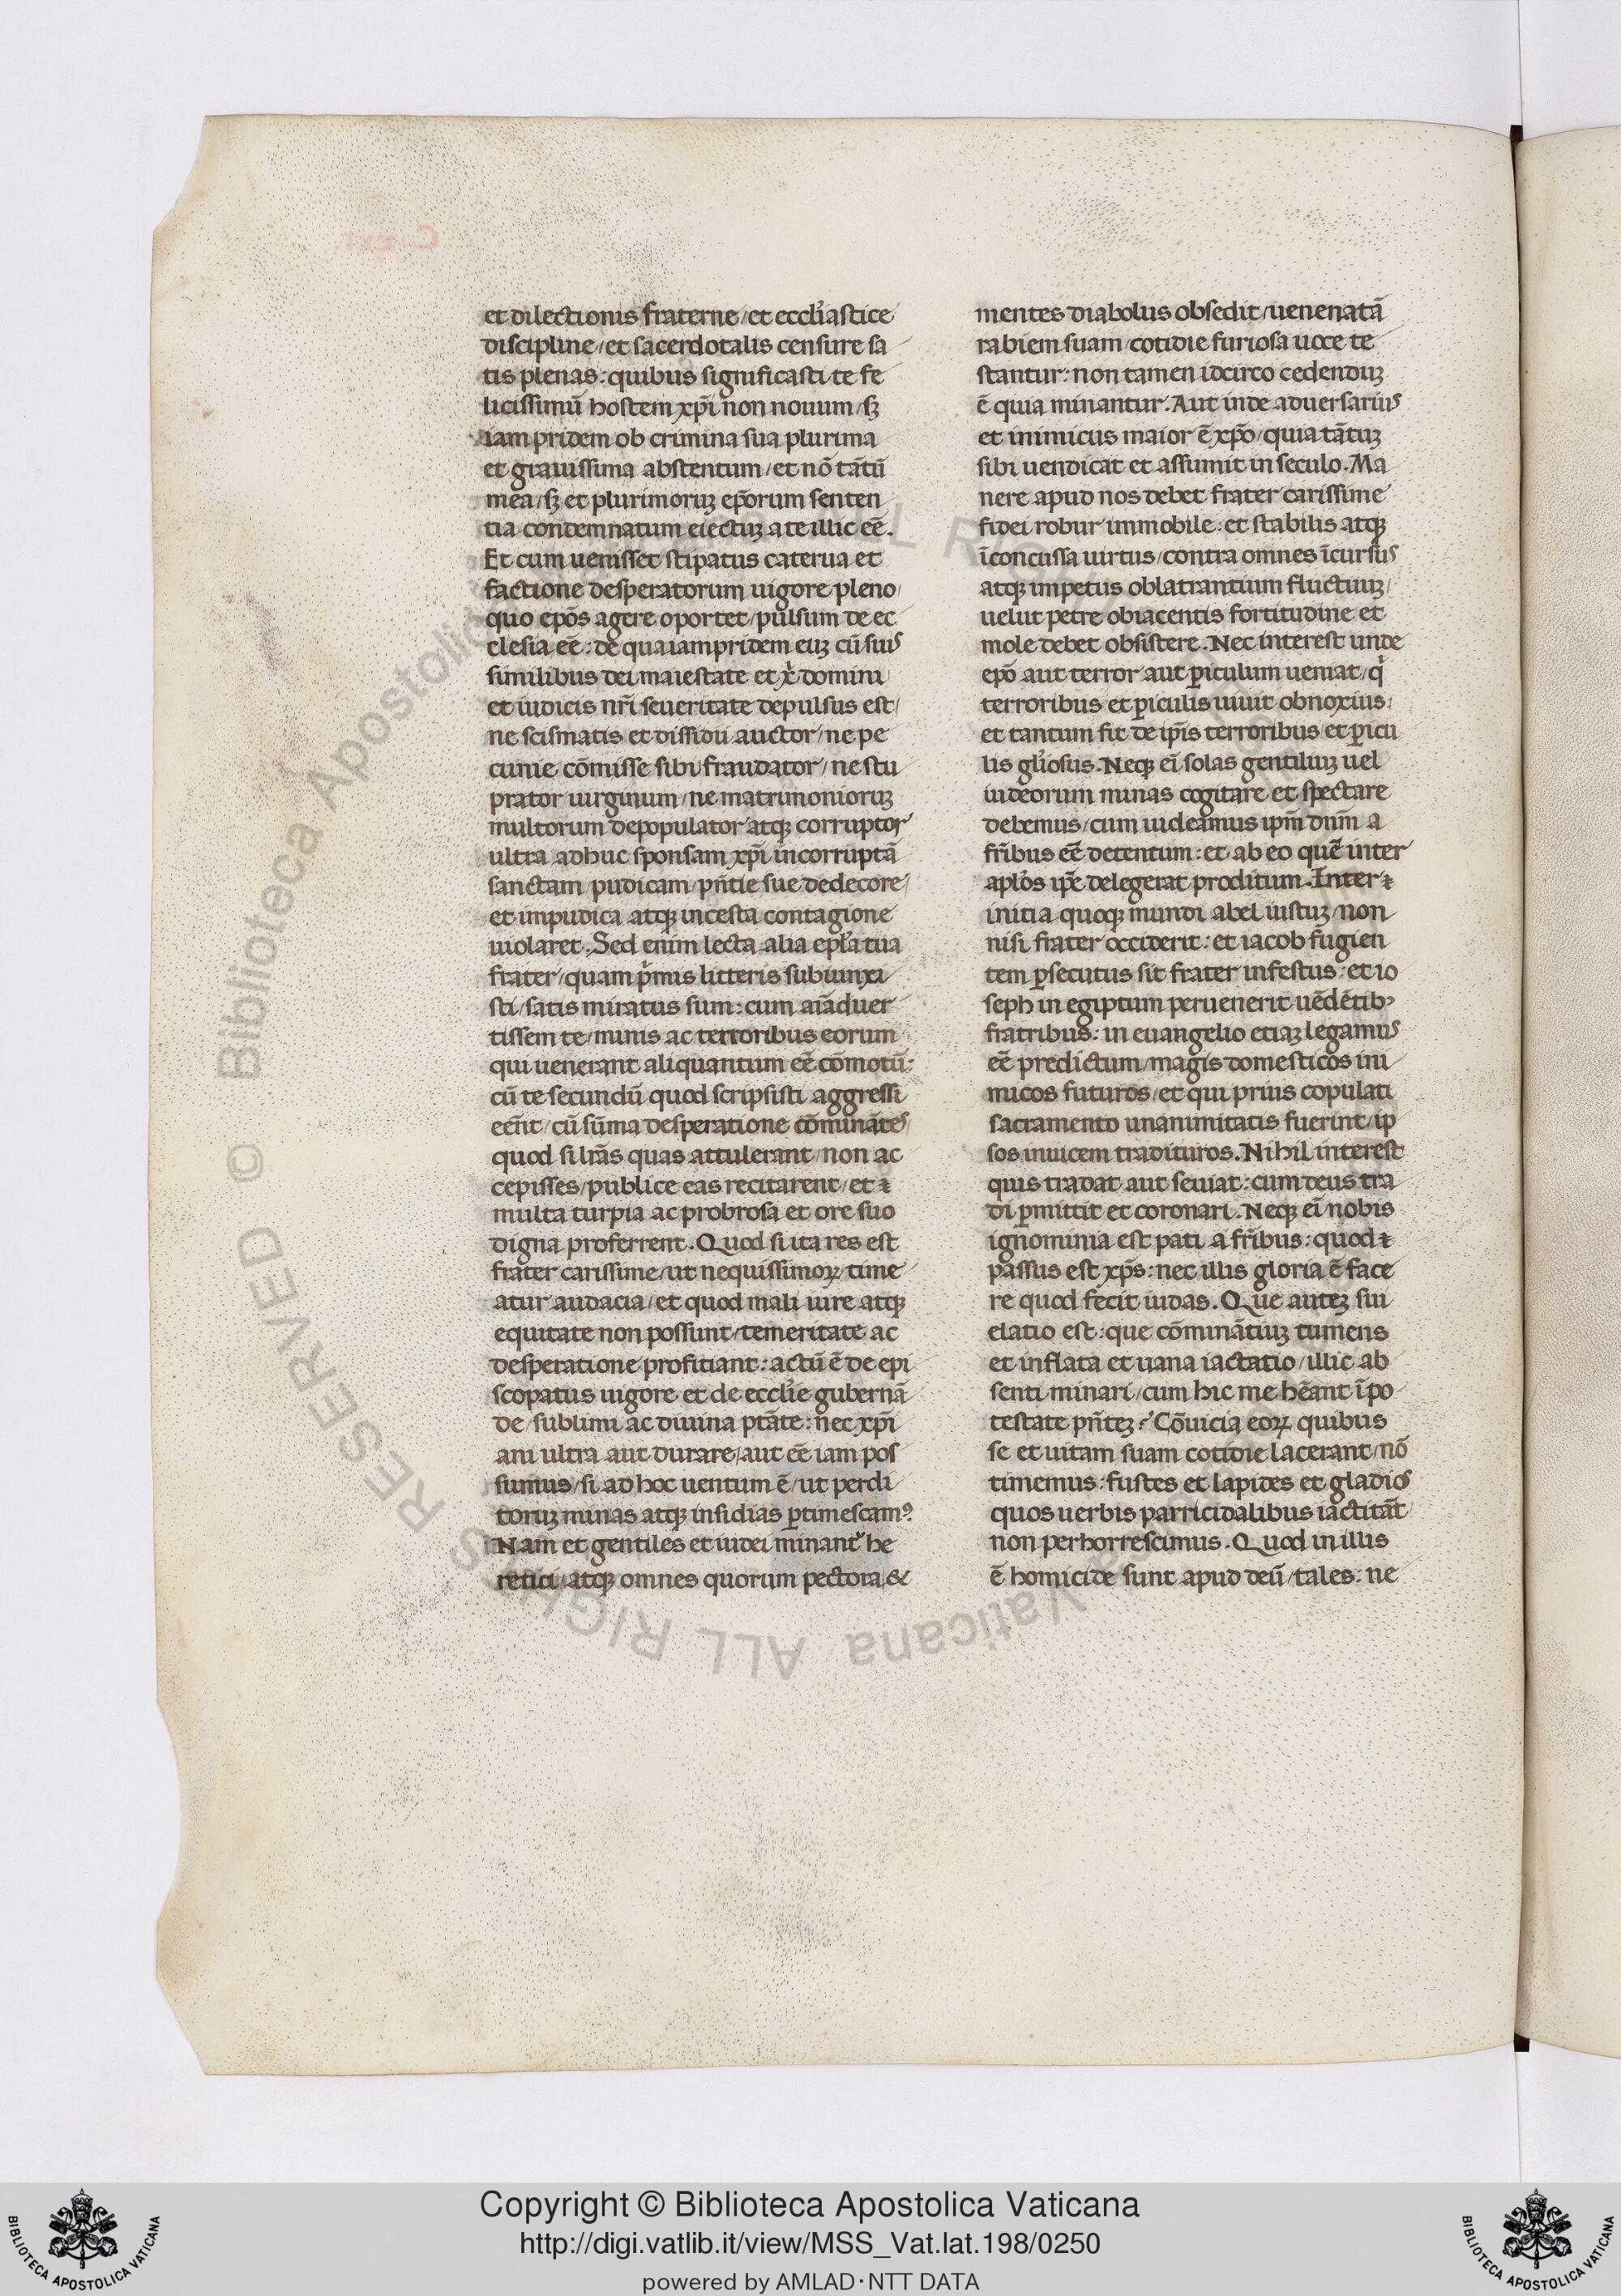 et dilectionis fraterne / et eccl'iastice
discipline / et sacerdotalis censure sa
tis plenas : quibus significasti te fe
licissimū hostem xp̄i non nouum / sꝫ
iam pridem ob crimina sua plurima
et grauissima abstentum / et nō tātū
mea / sꝫ et plurimoruꝫ ep̄orum senten
tia condemnatum eiectuꝫ a te illic eē̄.
Et cum uenisset stipatus caterua et
factione desperatorum uigore pleno
quo ep̄os agere oportet / pulsum de ec
clesia eē̄ : de qua iampridem cuꝫ cū suis
similibus dei maiestate et x̓ domini
et iudicis nr̄i seueritate depulsus est /
ne scismatis et dissidii auctor / ne pe
cunie cōmisse sibi fraudator / ne stu
prator uirginum / ne matrimonioruꝫ
multorum depopulator atqꝫ corruptor
ultra adhuc sponsam xp̄i incorruptā
sanctam pudicam / pn̄tie sue dedecore /
et impudica atqꝫ incesta contagione
uiolaret. Sed enim lecta alia epl'a tua
frater / quam pͥmis litteris subiunxi
sti / satis miratus sum : cum aīaduer
tissem te / minis ac terroribus eorum
qui uenerant aliquantum eē̄ cōmotū :
cū te secundū quod scripsisti aggressi
eēnt / cū sūma desperatione cōmināтes /
quod si lr̄as quas attulerant / non ac
cepisses / publice eas recitarent / et ⁊
multa turpia ac probrosa et ore suo
digna proferrent. Quod si ita res est
frater carissime / ut nequissimoꝝ time
atur audacia / et quod mali iure atqꝫ
equitate non possunt / temeritate ac
desperatione profitiant : actū ē de epi
scopatus uigore et de eccl'ie gubernā
de / sublimi ac diuina ptāte : nec xp̄i
ani ultra aut durare / aut eē̄ iam pos
sumus / si ad hoc uentum ē / ut perdi
toruꝫ minas atqꝫ insidias ꝑtimescamꝰ.
Nam et gentiles et iudei minant᷑ he
retici / atqꝫ omnes quorum pectora &
mentes diabolus obsedit / uenenatā
rabiem suam / cotidie furiosa uoce te
stantur : non tamen idcirco cedenduꝫ
ē quia minantur. Aut inde aduersarius
et inimicus maior ē xp̄o / quia tātuꝫ
sibi uendicat et assumit in seculo. Ma
nere apud nos debet frater carissime
fidei robur immobile : et stabilis atqꝫ
īconcussa uirtus / contra omnes īcursus
atqꝫ impetus oblatrantium fluctuuꝫ /
uelut petre obiacentis fortitudine et
mole debet obsistere. Nec interest unde
ep̄o aut terror aut ꝑiculum ueniat / qͥ
terroribus et ꝑiculis uiuit obnoxius /
et tantum fit de ip̄is terroribus et ꝑicu
lis gl'iosus. Neqꝫ ei᷑ solas gentiliuꝫ uel
iudeorum minas cogitare et spectare
debemus / cum uideamus ip̄m dn̄m a
fr̄ibus eē̄ detentum : et ab eo quē inter
apl'os ip̄e delegerat proditum. Inter ⁊
initia quoqꝫ mundi abel iustuꝫ / non
nisi frater occiderit : et iacob fugien
tem ꝑsecutus sit frater infestus : et io
seph in egiptum peruenerit uēdētibꝫ
fratribus : in euangelio etiaꝫ legamus
eē̄ predictum / magis domesticos ini
micos futuros / et qui prius copulati
sacramento unanimitatis fuerint / ip
sos inuicem tradituros. Nihil interest
quis tradat aut seuiat : cum deus tra
di ꝑmittit et coronari. Neqꝫ ei᷑ nobis
ignominia est pati a fr̄ibus : quod ⁊
passus est xp̄s : nec illis gloria ē face
re quod fecit iudas. Que auteꝫ sui
elatio est : que cōminātiuꝫ tumens
et inflata et uana iactatio / illic ab
senti minari / cum hic me hēant ī po
testate pn̄teꝫ ? Cōuicia eoꝝ quibus
se et uitam suam cotidie lacerant / nō
timemus : fustes et lapides et gladios
quos uerbis parricidalibus iactitāt
non perhorrescimus. Quod in illis
ē homicide sunt apud deū / tales : ne
© Biblioteca Apostolica Vaticana ALL RIGHTS RESERVED
Copyright © Biblioteca Apostolica Vaticana
http://digi.vatlib.it/view/MSS_Vat.lat.198/0250
powered by AMLAD·NTT DATA
BIBLIOTECA APOSTOLICA VATICANA
BIBLIOTECA APOSTOLICA VATICANA